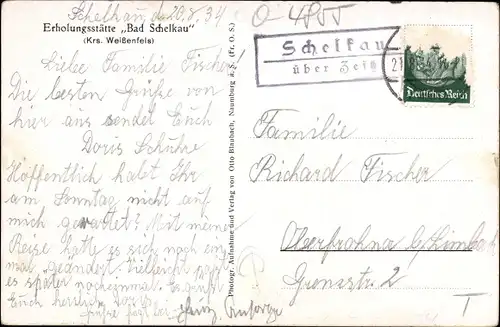 Schelkau, d. 20.8.34
O 4855
Erholungsstätte „Bad Schelkau“
(Krs. Weißenfels)
Schelkau
über Zeitz
21
Deutsches Reich
Liebe Familie Fischer!
Die besten Grüße von
hier aus sendet Euch
Doris Schühre
Hoffentlich habt Ihr
am Sonntag nicht auf
mich gewartet? Mit meiner
Reise hatte es sich noch ein-
mal geändert. Vielleicht paßt
es später nocheinmal. Es grüßt
Euch herzlich Doris
Grüße fügt bei
Photogr. Aufnahme und Verlag von Otto Blaubach, Naumburg a. S. (Fr. O. S.)
Familie
Richard Fischer
Oberfrohna b/Limbach
Grenzstr. 2
T